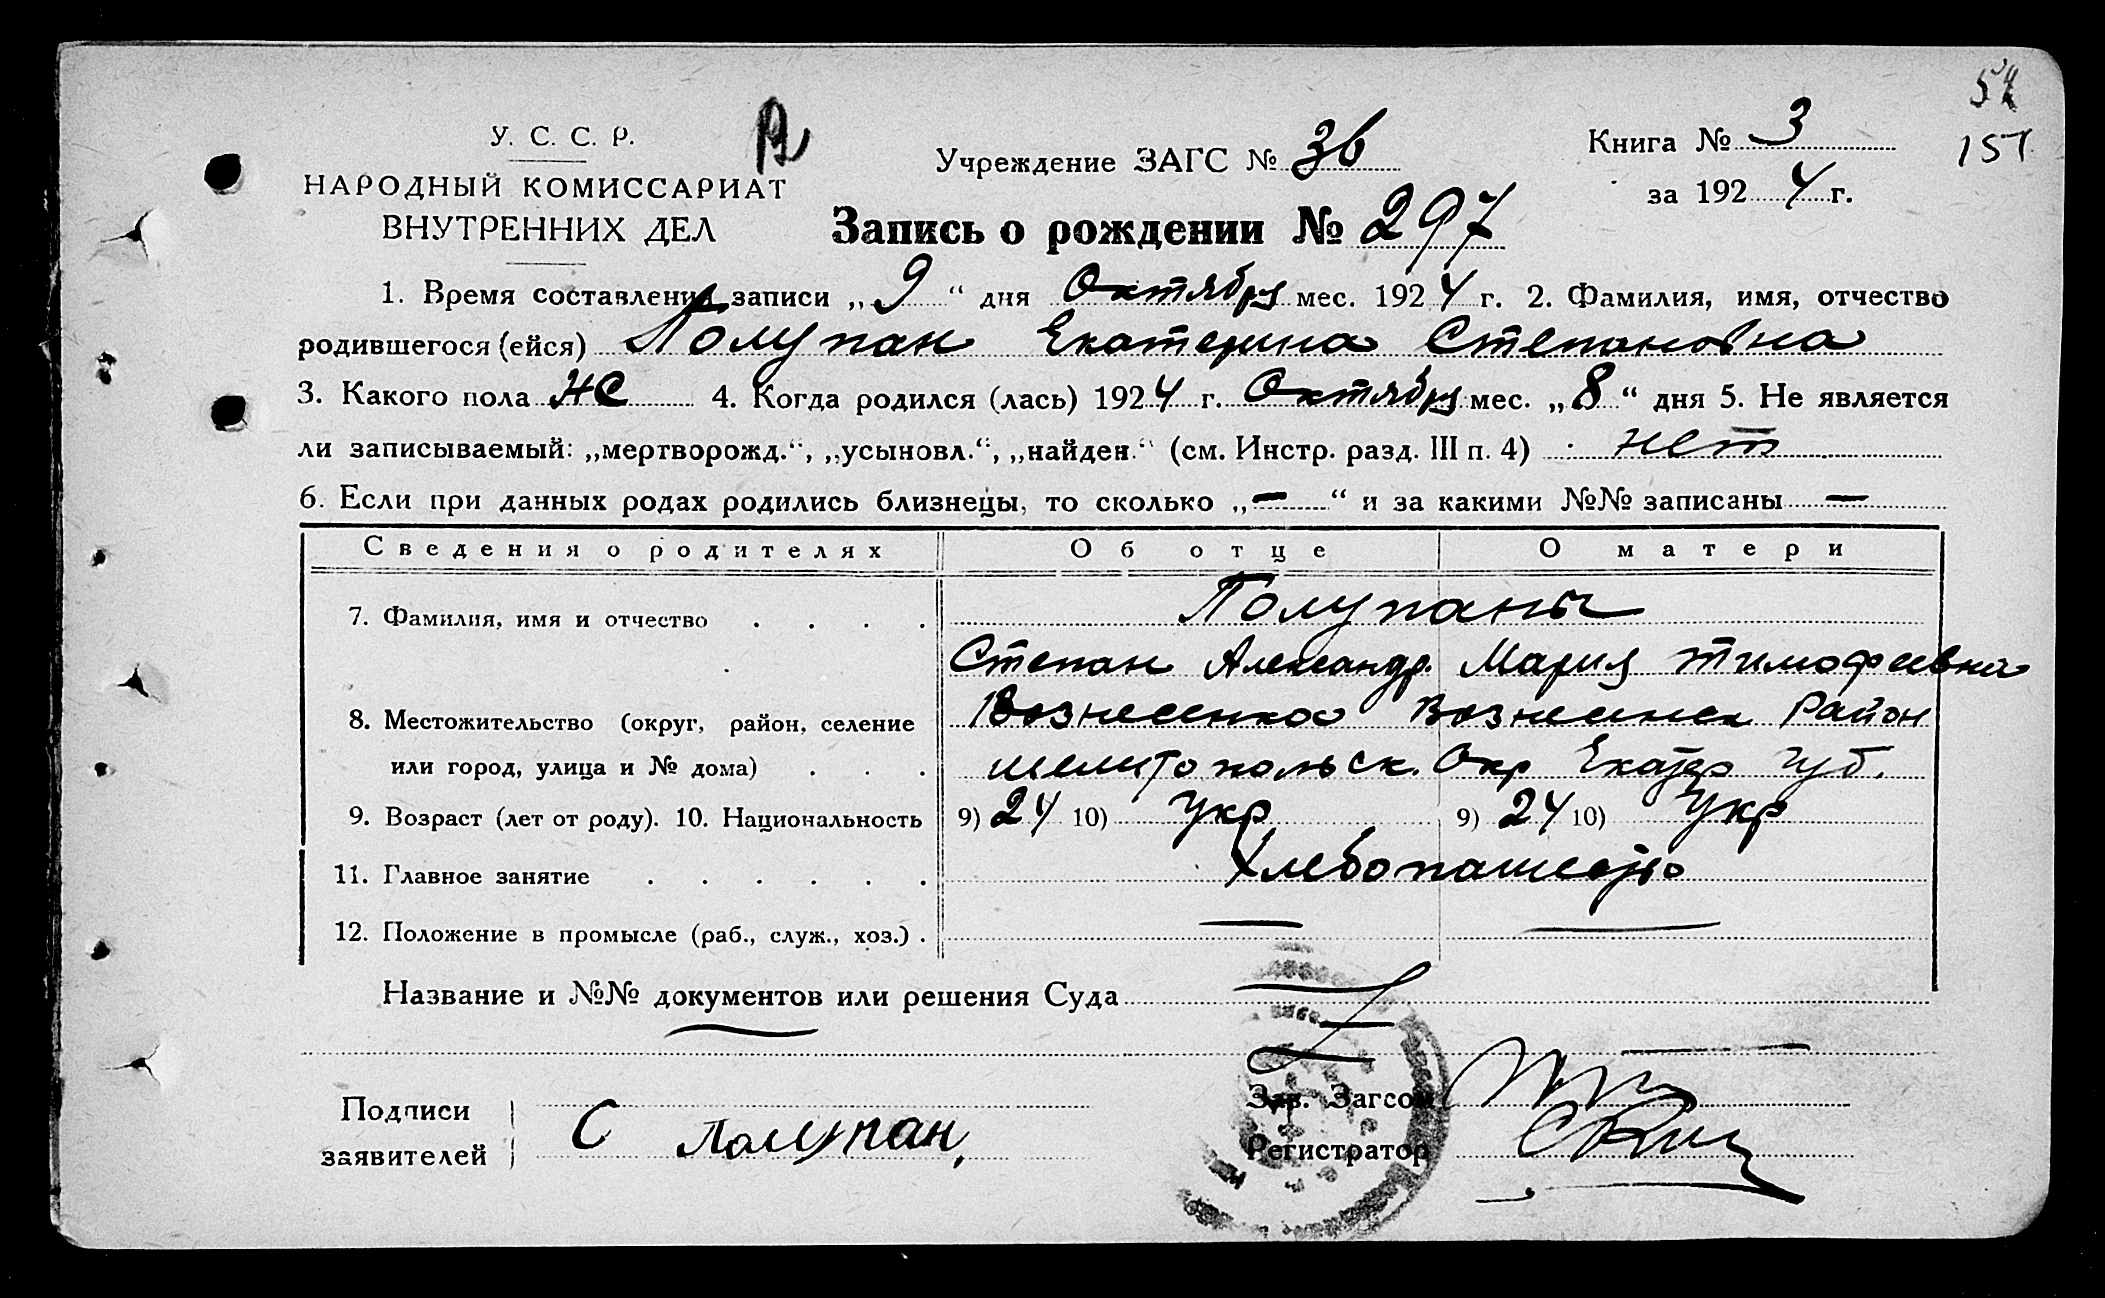 151
У. С. С. Р.
НАРОДНЫЙ КОМИССАРИАТ
ВНУТРЕННИХ ДЕЛ
Учреждение ЗАГС № 36
Книга № 3
за 1924 г.
Запись о рождении № 297
1. Время составления записи „ 9 “ дня Октября мес. 1924 г. 2. Фамилия, имя, отчество
родившегося (ейся) Полупан Екатерина Степановна
3. Какого пола Ж 4. Когда родился (лась) 1924 г. Октября мес. „ 8 “ дня 5. Не является
ли записываемый: „мертворожд.“, „усыновл.“, „найден.“ (см. Инстр. разд. III п. 4) нет
6. Если при данных родах родились близнецы, то сколько „ — “ и за какими №№ записаны —
Сведения о родителях Об отце О матери
7. Фамилия, имя и отчество . . . . Полупаны
Степан Александр. Мария Тимофеевна
8. Местожительство (округ, район, селение Вознесенка Вознесенск Район
или город, улица и № дома) . . . Мелитопольск. Окр Екатер Губ.
9. Возраст (лет от роду). 10. Национальность 9) 24 10) Укр 9) 24 10) Укр
11. Главное занятие . . . . . . Хлебопашество
12. Положение в промысле (раб., служ., хоз.) . — —
Название и №№ документов или решения Суда
Подписи
заявителей С Полупан
Зав. Загсом
Регистратор